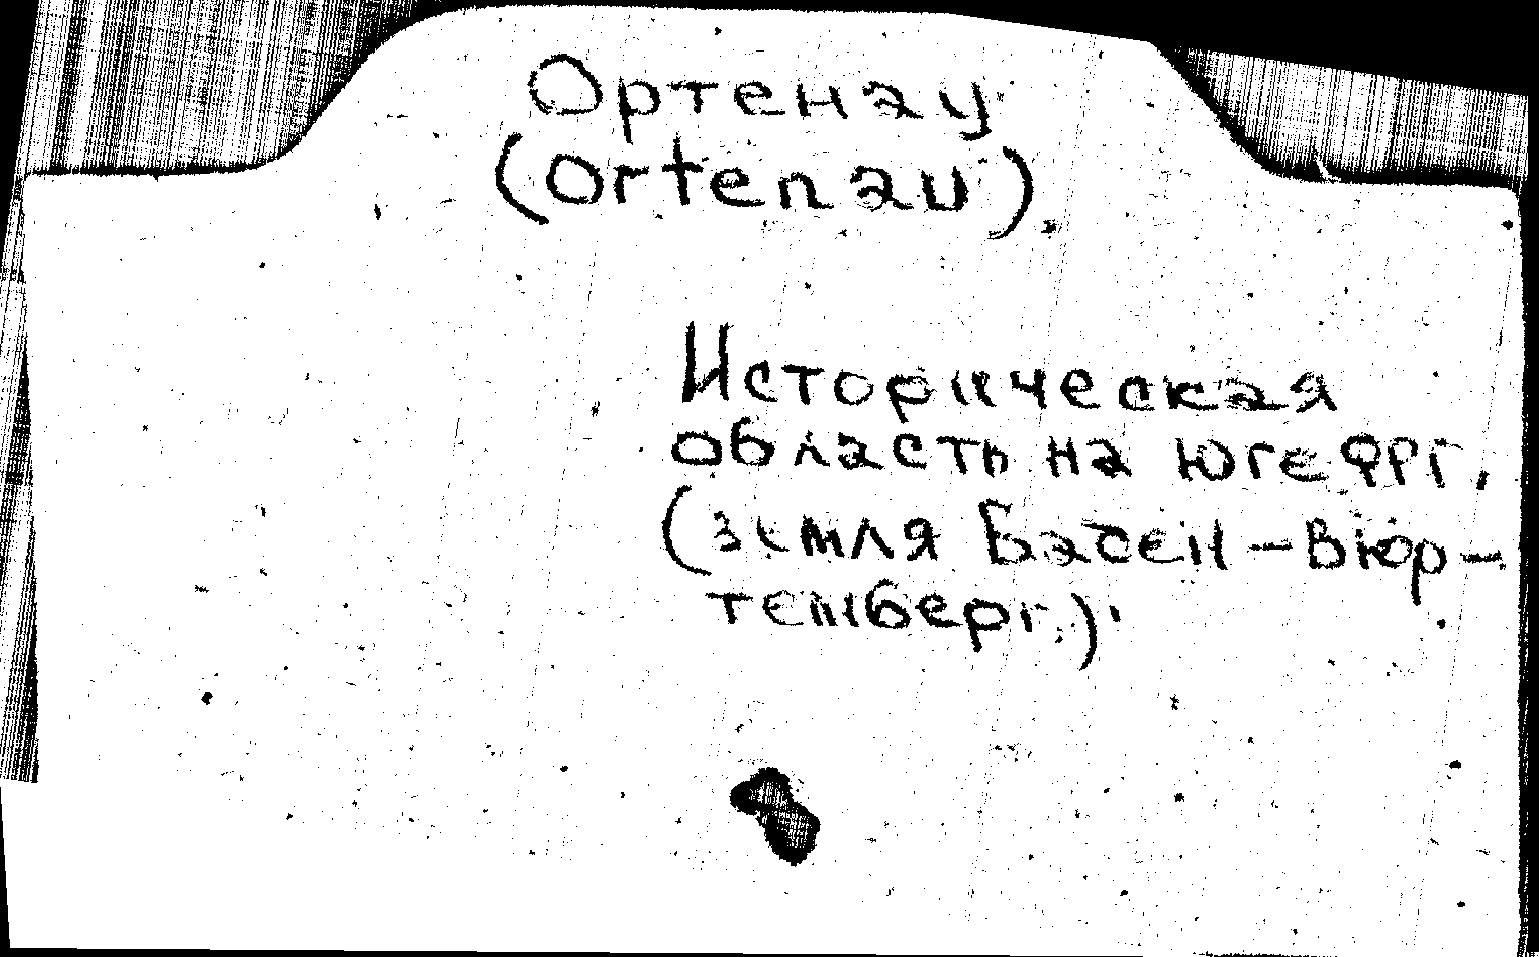 Ортенау
(Ortenau).
Историческая
область на юге ФРГ.
(земля Баден-Вюр-
темберг.)